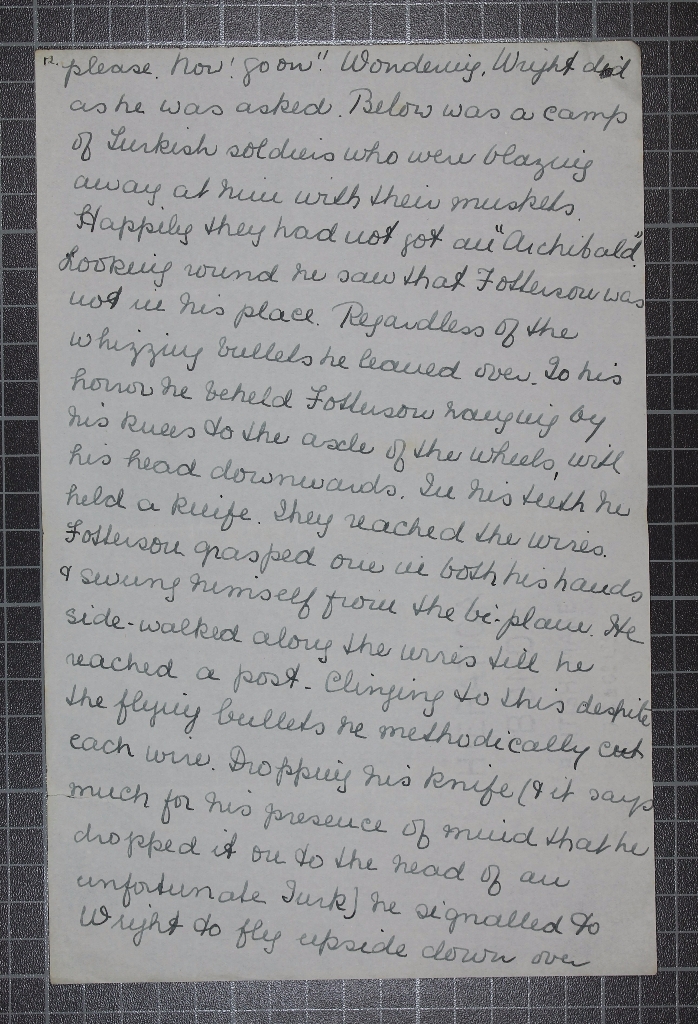 12. please. Now! go on!! Wondering, Wright did
as he was asked. Below was a camp
of Turkish soldiers who were blazing
away at him with their muskets.
Happily they had not got an "Archibald"
Looking round he saw that Fotterson was
not in his place. Regardless of the
whizzing bullets he leaned over. To his
horror he beheld Fotterson hanging by
his knees to the axle of the wheels, with
his head downwards. In his teeth he
held a knife. They reached the wires.
Fotterson grasped one in both his hands
& swung himself from the bi-plane. He
side-walked along the wires till he
reached a post - Clinging to this despite
the flying bullets he methodically cut
each wire. Dropping his knife (& it says
much for his presence of mind that he
dropped it on to the head of an
unfortunate Turk) he signalled to
Wright to fly upside down over